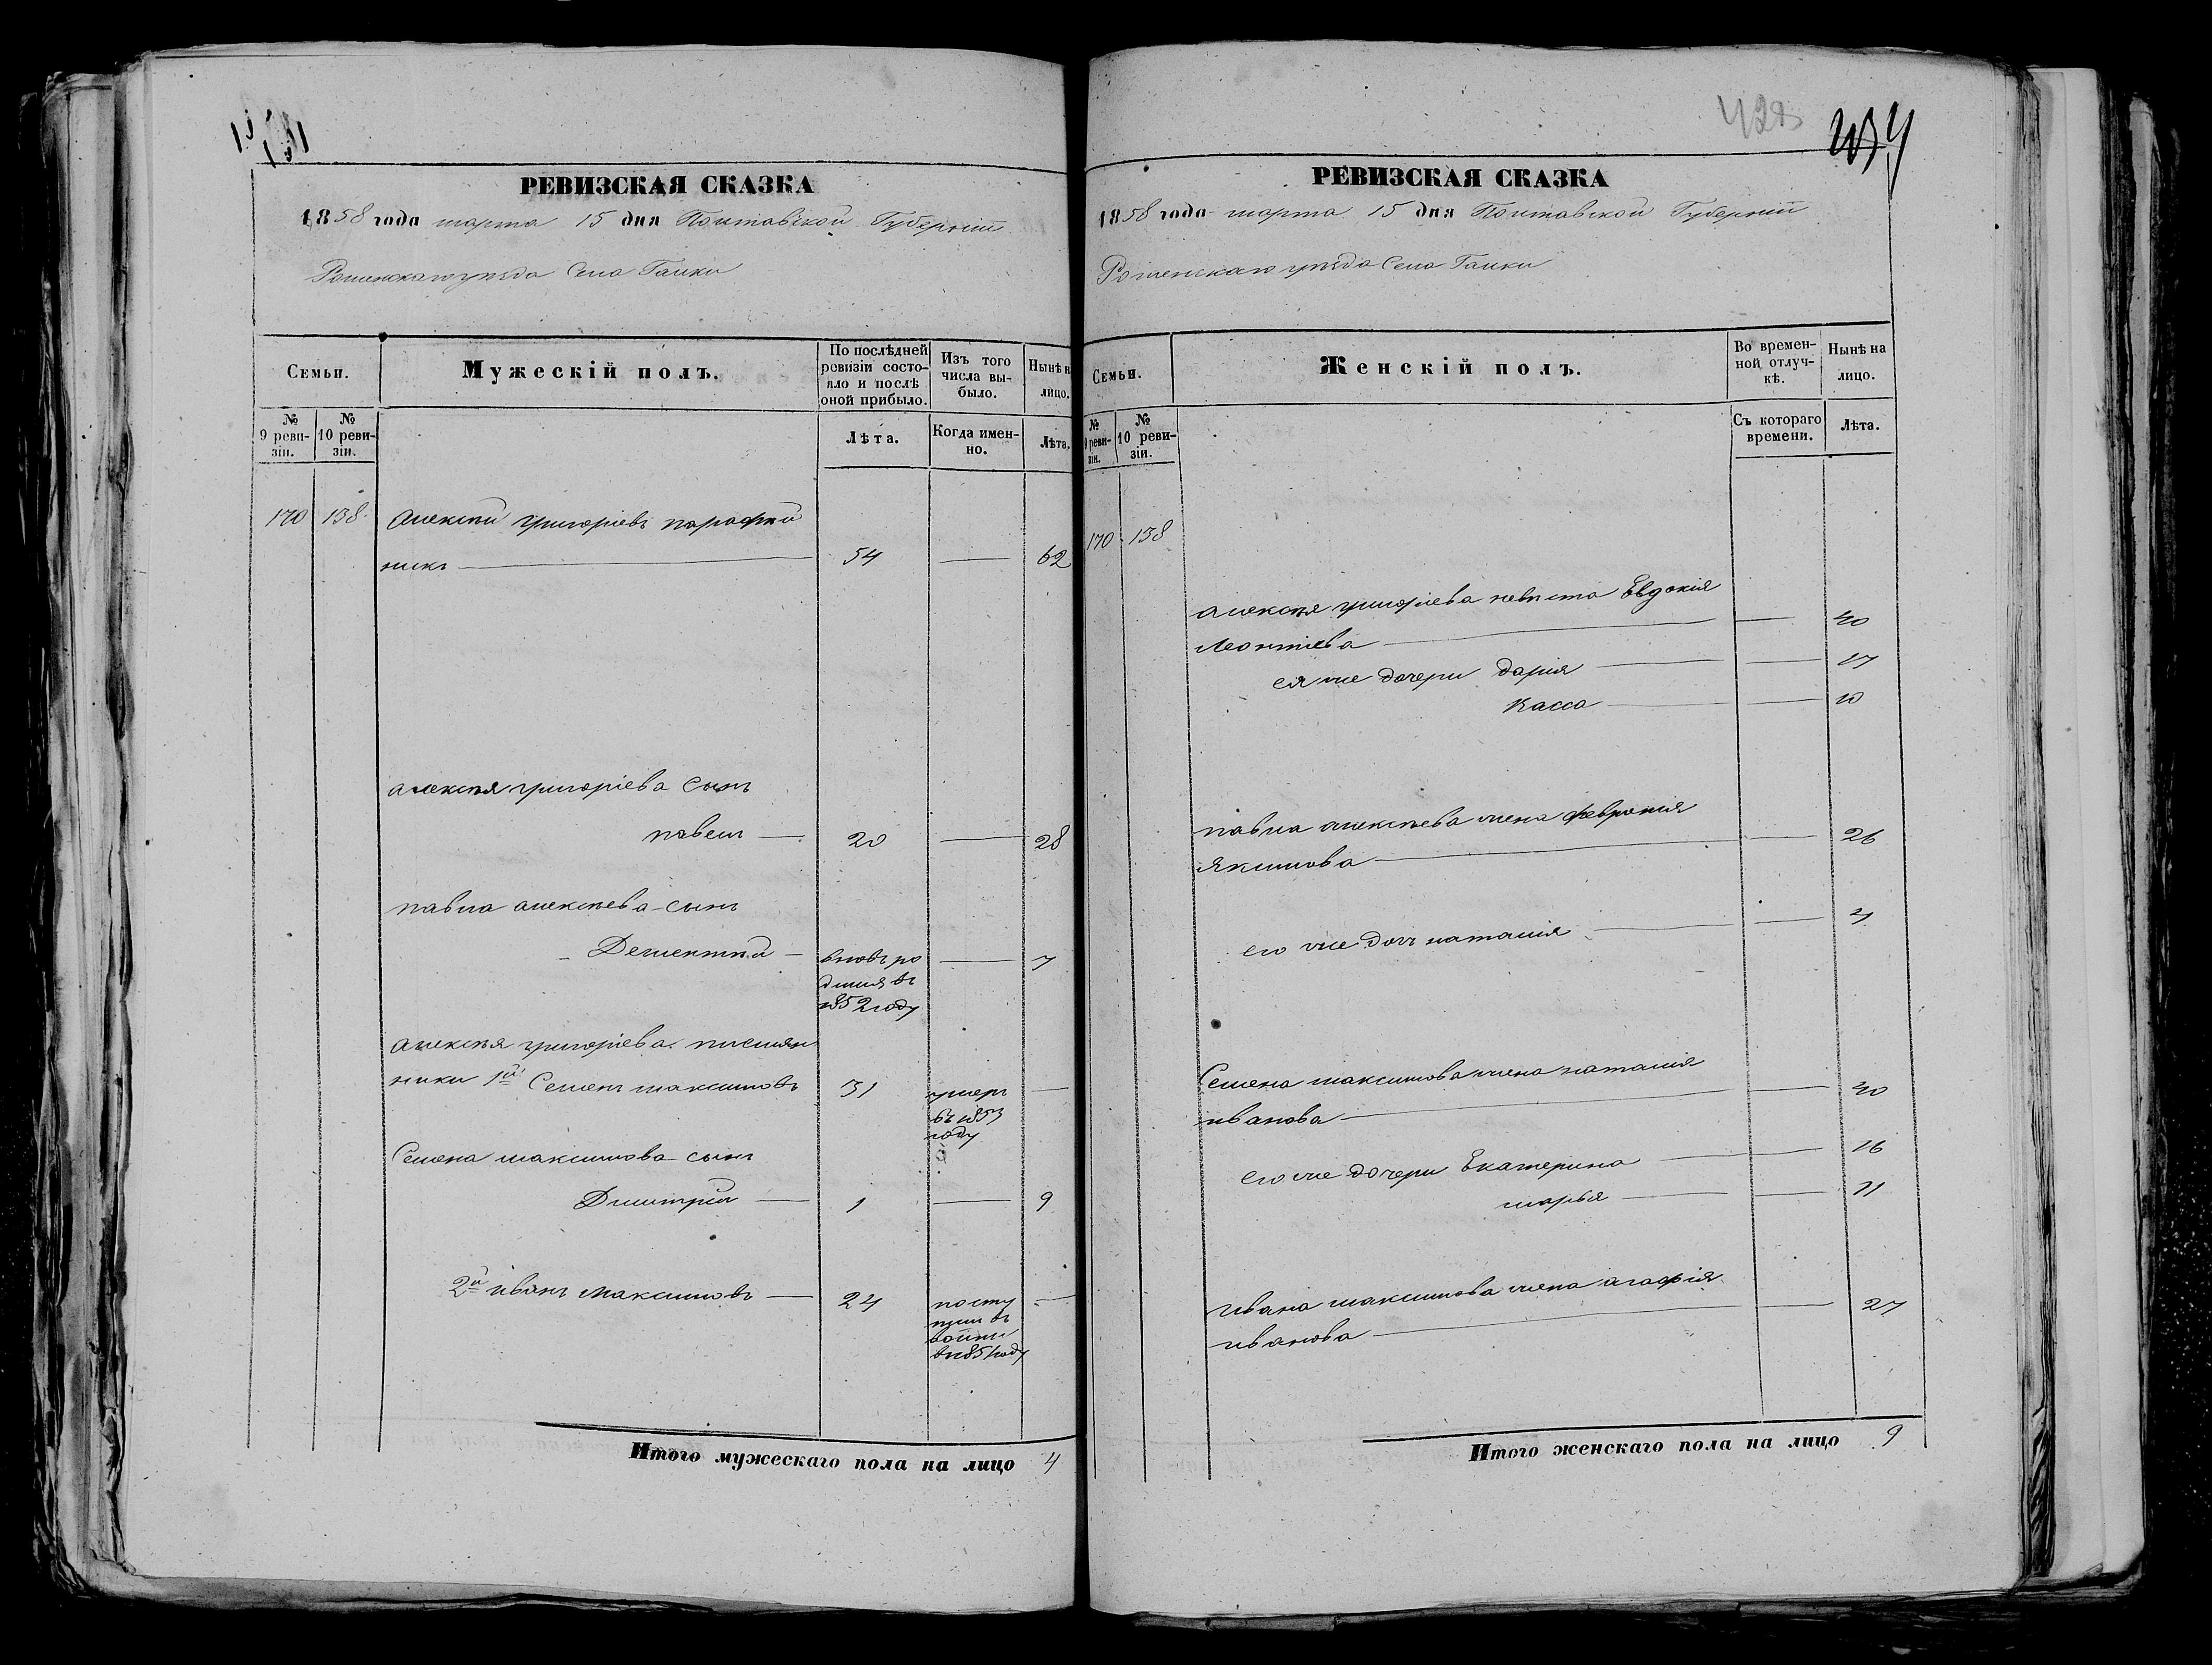 РЕВИЗСКАЯ СКАЗКА
1858 года марта 15 дня Полтавской Губерніи
Роменскаго уѣзда Села Галки
Семьи.
Мужескій полъ.
По послѣдней ревизіи состояло и послѣ оной прибыло.
Изъ того числа выбыло.
Нынѣ н лицо.
№ 9 ревизіи.
№ 10 ревизіи.
Лѣта.
Когда именно.
Лѣта.
170 138 Алексѣй григоріевъ парафій
никъ — 54 — 62
алексѣя григоріева сынъ
павелъ — 20 — 28
павла алексѣева сынъ
Дементій — вновь ро — 7
дился въ
1852 году
алексѣя григоріева племян
ники 1й Семенъ максимовъ 31 умеръ —
въ 1853
году
Семена максимова сынъ
Дмитрій — 1 — 9
2й иванъ максимовъ — 24 посту —
пилъ въ
войны
въ 1851 году
Итого мужескаго пола на лицо 4
428
РЕВИЗСКАЯ СКАЗКА
1858 года марта 15 дня Полтавской Губерніи
Роменскаго уѣзда Села Галки
Семьи.
Женскій полъ.
Во временной отлучкѣ.
Нынѣ на лицо.
№ 9 ревизіи.
№ 10 ревизіи.
Съ котораго времени.
Лѣта.
170 138
алексѣя григоріева невѣста Евдокія
Леонтіева — — 40
ея же дочери дарія — — 17
Касса — — 10
павла алексѣева жена февронія
Якимова — — 26
его же дочь наталія — — 4
Семена максимова жена наталия
иванова — — 40
его же дочери Екатерина — — 16
марья — — 11
Ивана максимова жена агафія
иванова — — 27
Итого женскаго пола на лицо 9